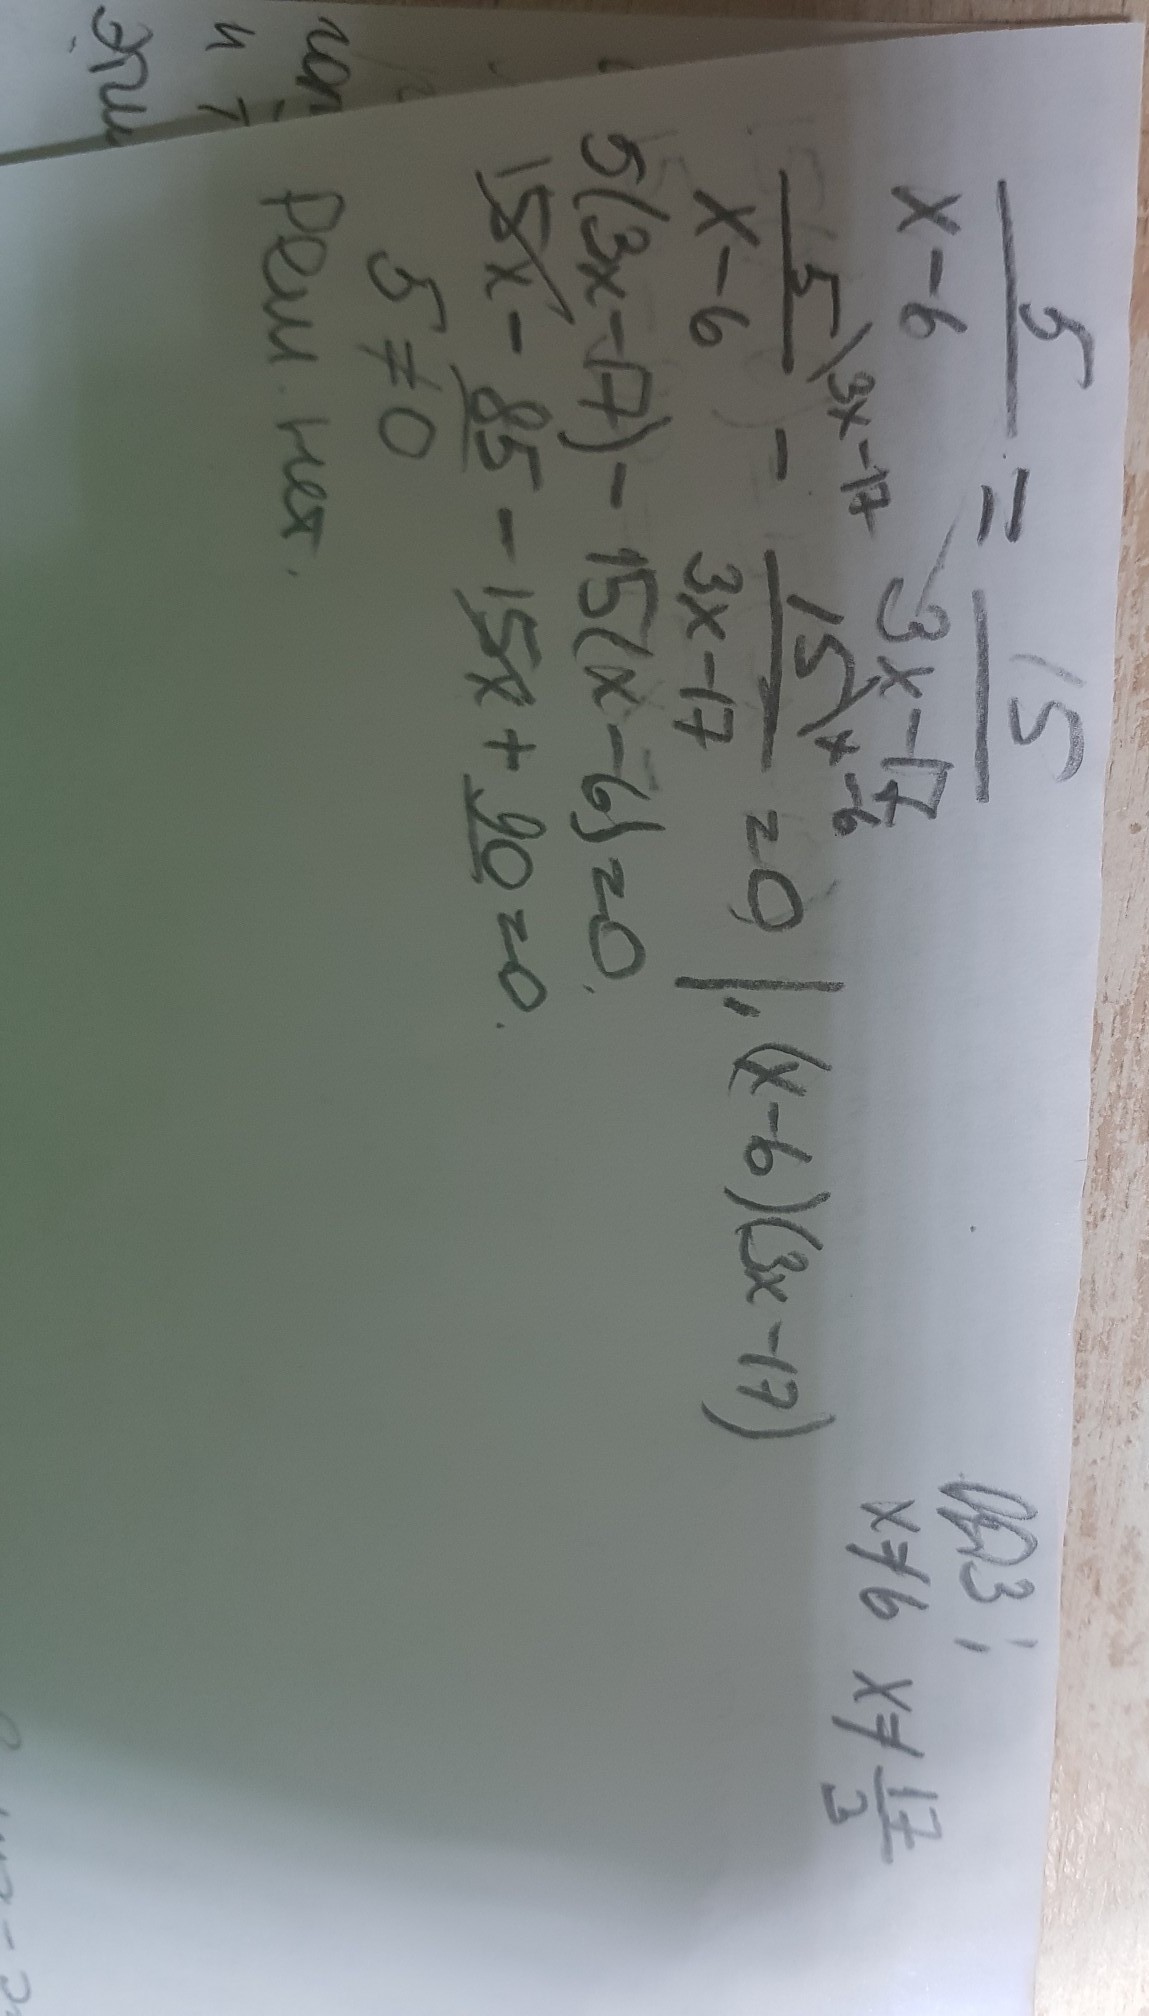 5/(x-6) = 15/(3x-17)
ОДЗ:
x≠6 x≠17/3
5\3x-17/(x-6) - 15\x-6/(3x-17) = 0 |·(x-6)(3x-17)
5(3x-17)-15(x-6)=0.
15x-85-15x+90=0.
5≠0
Реш. нет.